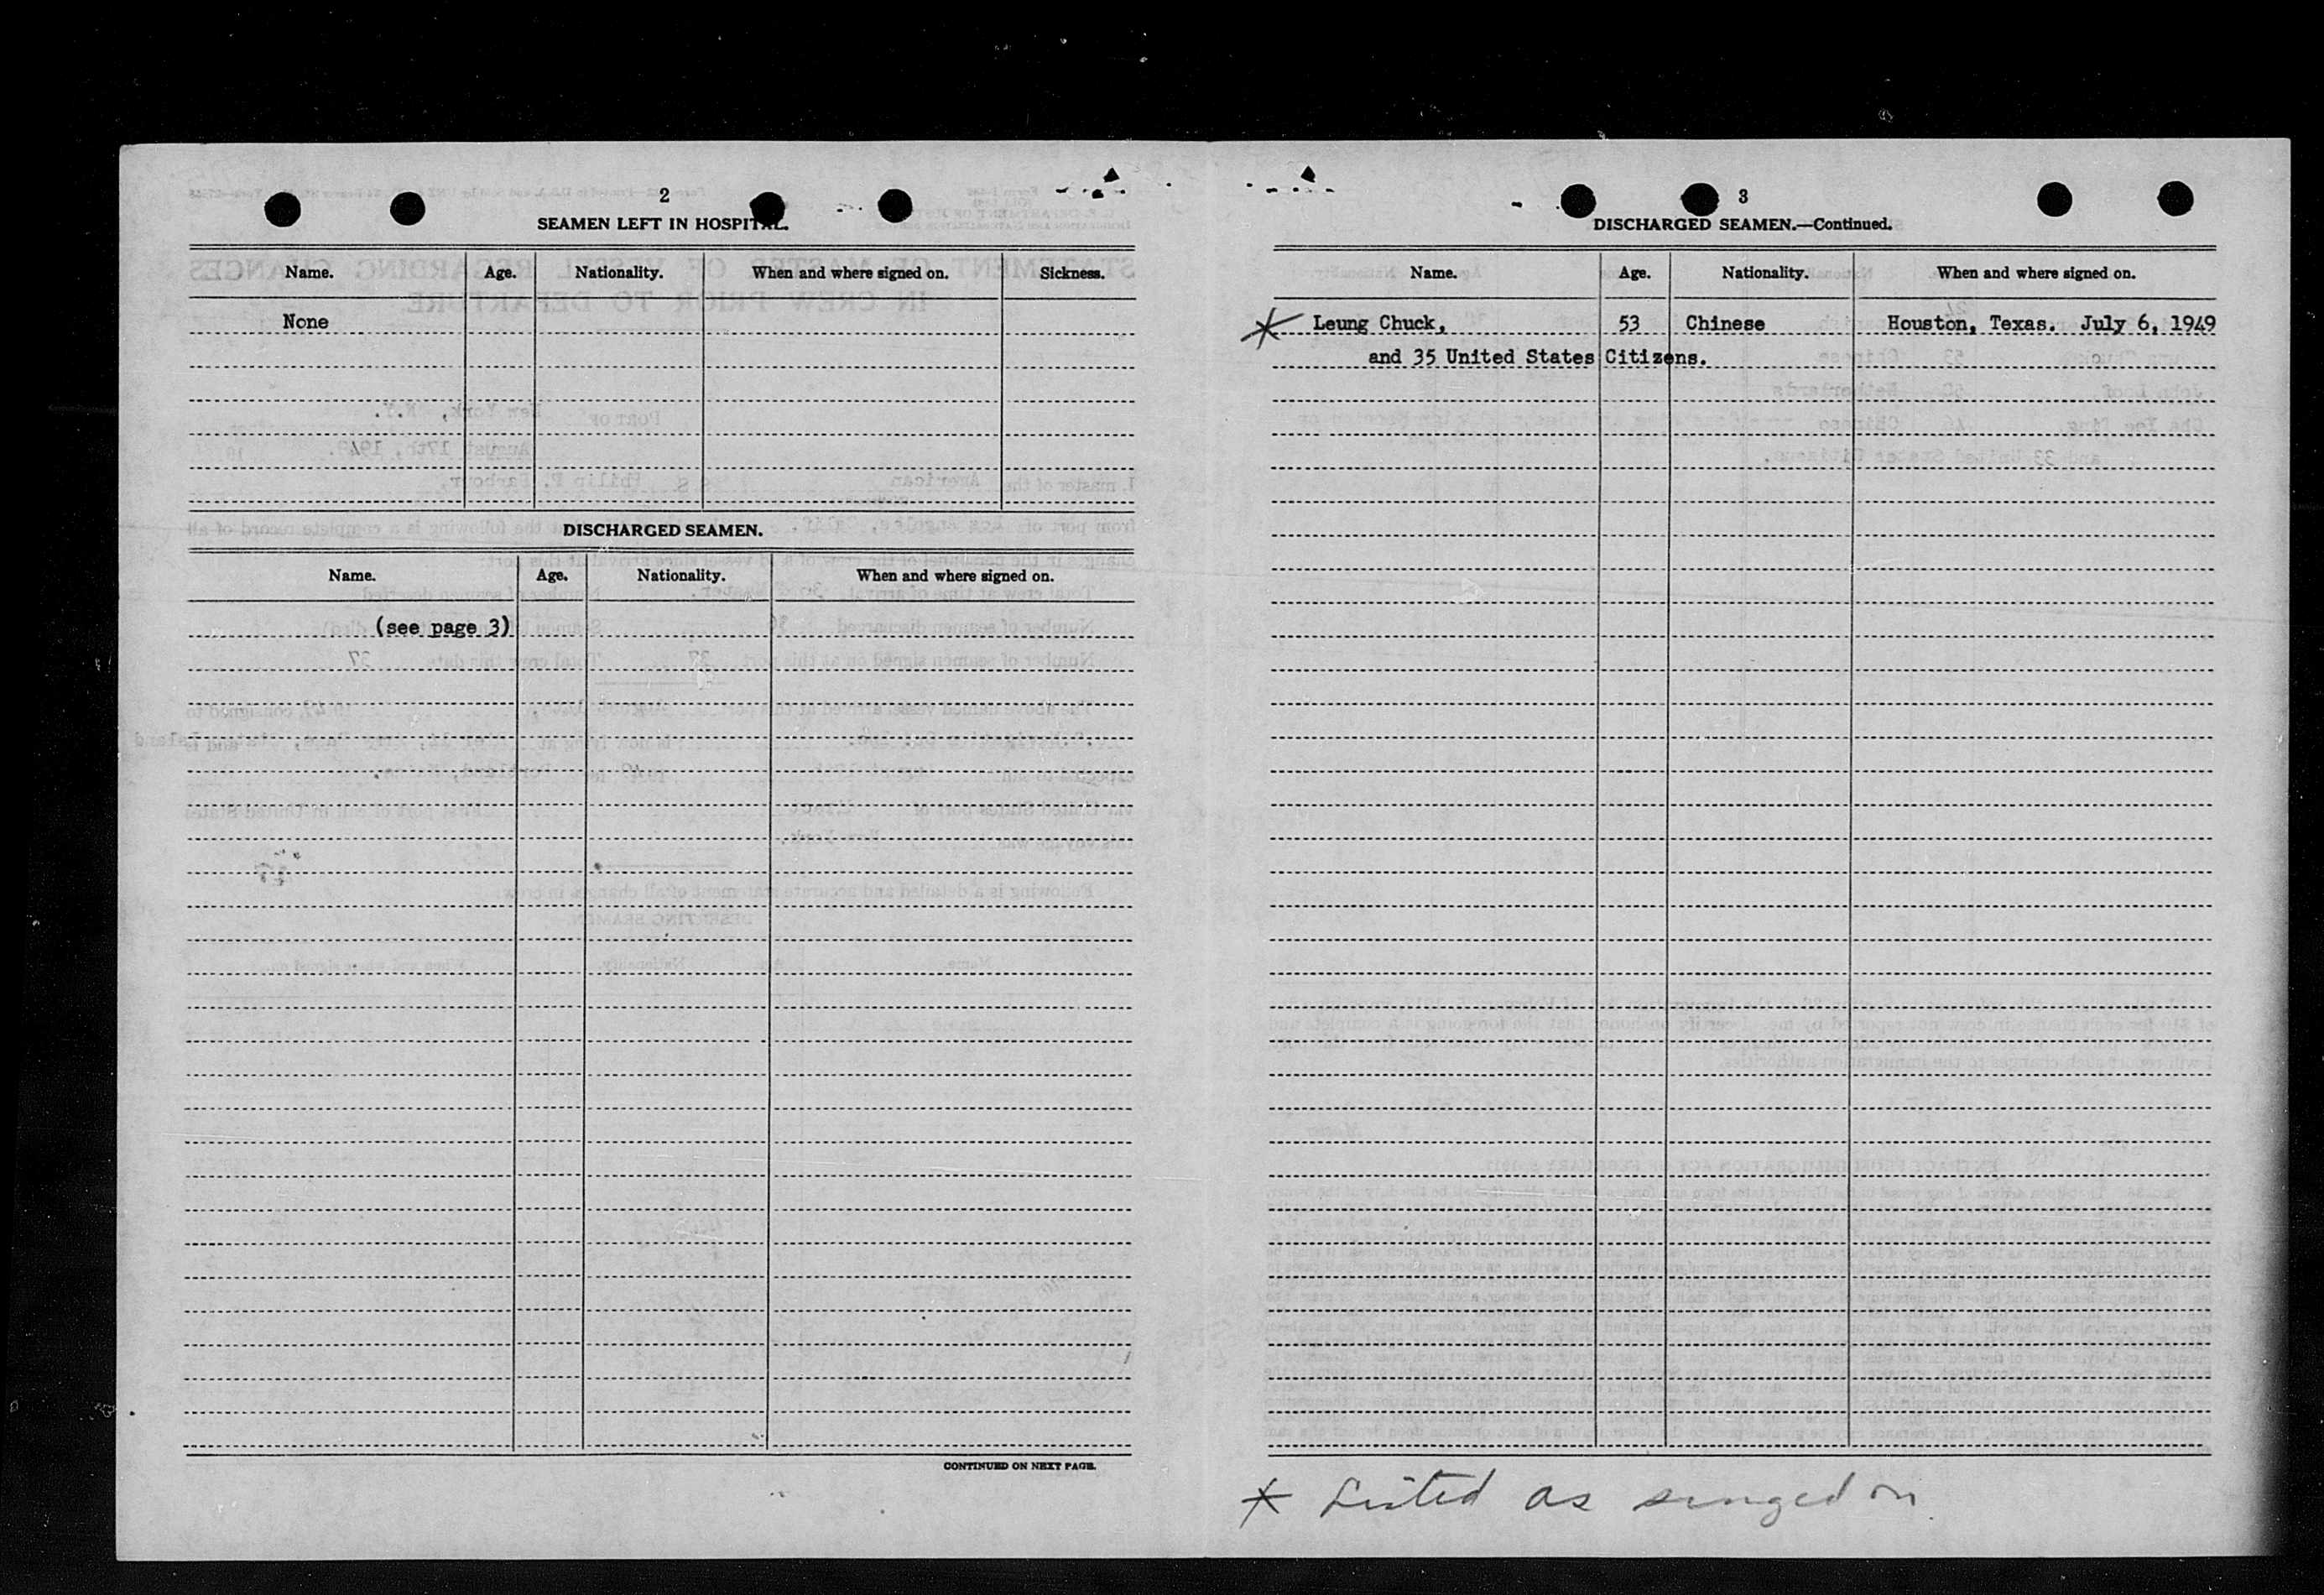 2
SEAMEN LEFT IN HOSPITAL.
Name. Age. Nationality. When and where signed on. Sickness.
None
DISCHARGED SEAMEN.
Name. Age. Nationality. When and where signed on.
(see page 3)
CONTINUED ON NEXT PAGE.
3
DISCHARGED SEAMEN.—Continued.
Name. Age. Nationality. When and where signed on.
* Leung Chuck, 53 Chinese Houston, Texas. July 6, 1949
and 35 United States Citizens.
* Listed as singed on